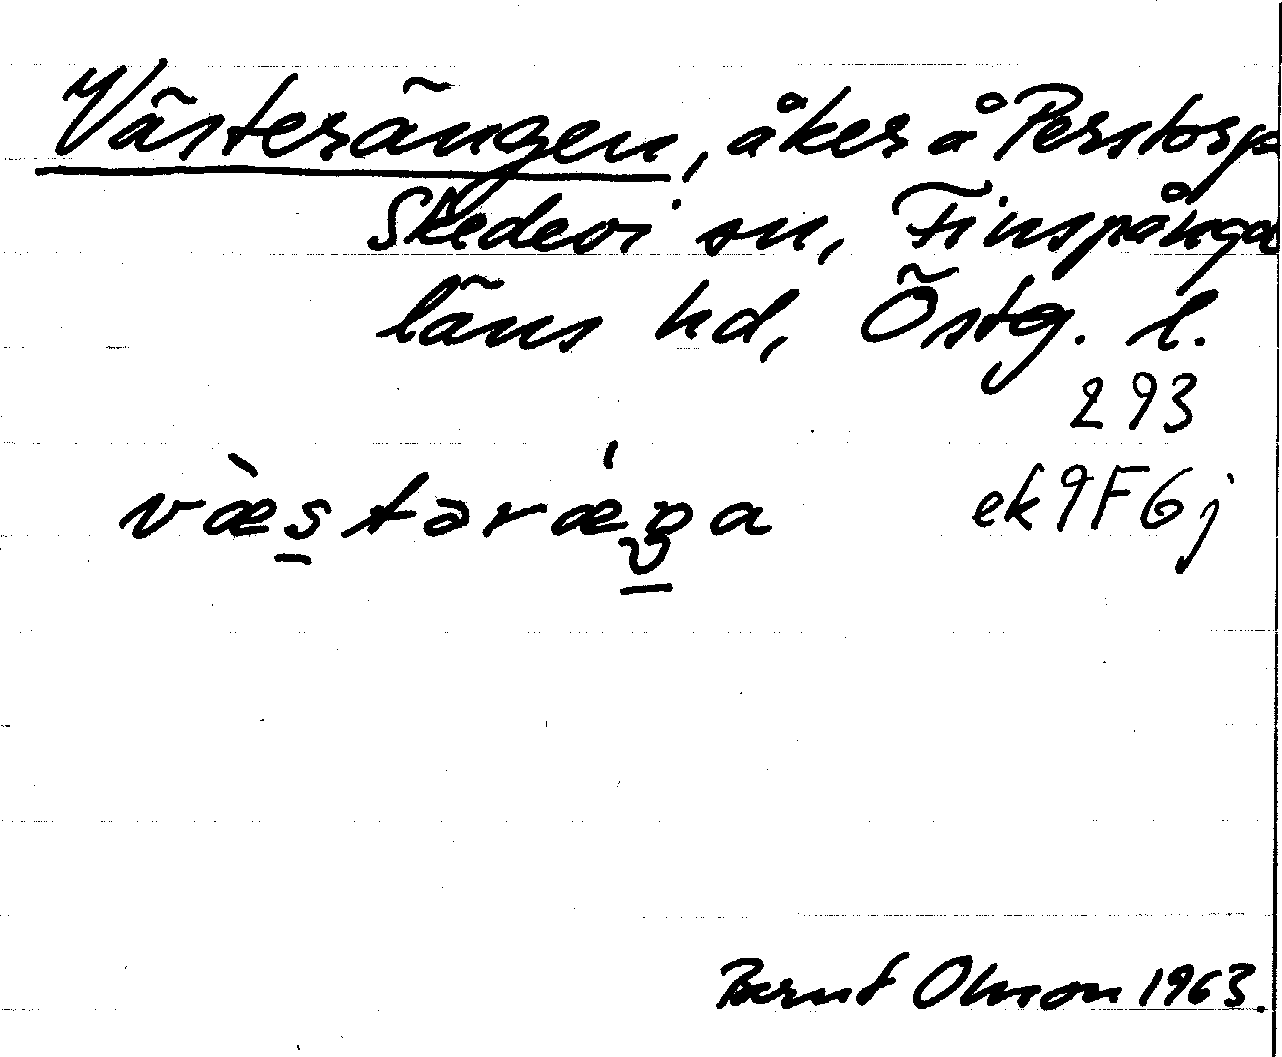 Västerängen, åker å Perstorp
Skedevi sn, Finspånga
läns hd, Östg. l.
293
væ̀stərǽŋa ek9F6j
Bernt Olsson 1963.